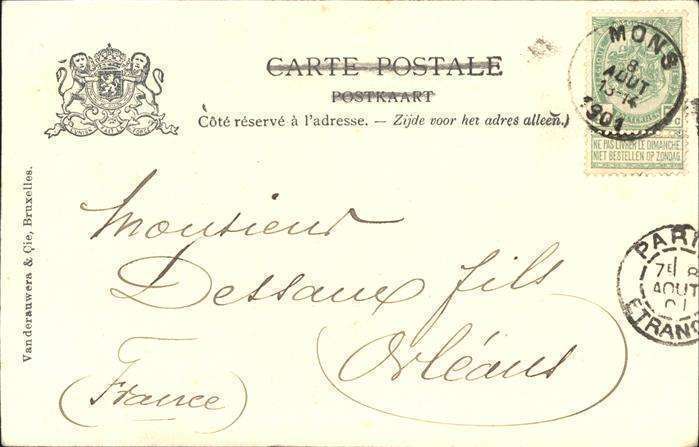 CARTE POSTALE
POSTKAART
Côté réservé à l'adresse. — Zijde voor het adres alleen.
MONS
8
AOUT
13-14
1901
NE PAS LIVRER LE DIMANCHE
NIET BESTELLEN OP ZONDAG
Vanderauwera & Cie, Bruxelles.
PARI
7E 8
AOUT
01
ETRANG
Monsieur
Dessaux fils
Orléans
(France)